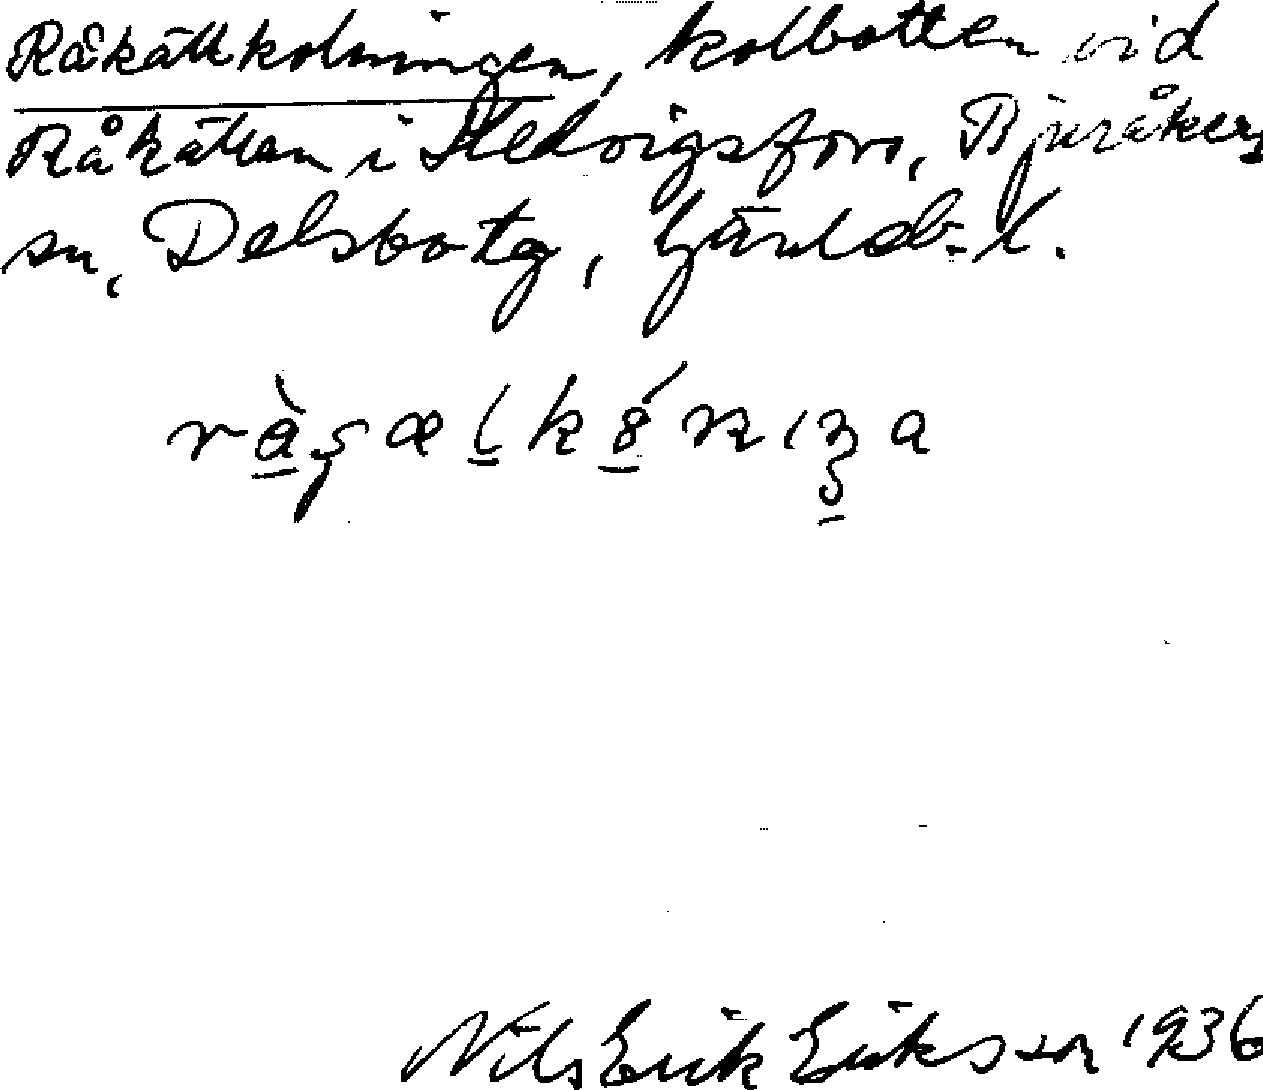 Råkällkolningen, kolbotten vid
Råkällan i Hedvigsfors, Bjuråkers
sn, Delsbo tg, Gävleb. l.
Nils Erik Eriksson 1936